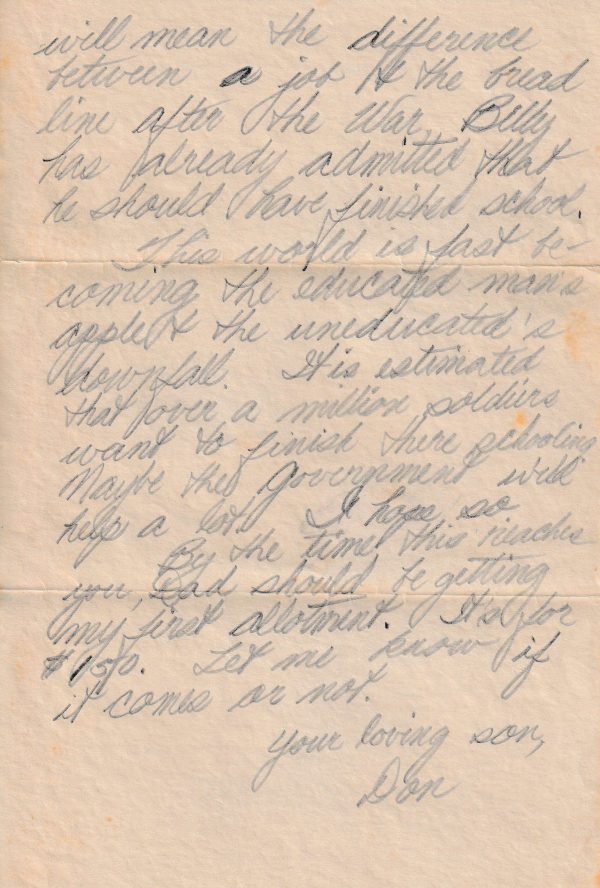 will mean the difference
between a job & the bread
line after the War. Billy
has already admitted that
he should have finished school.
This world is fast be-
coming the educated man's
apple & the uneducated's
downfall. It is estimated
that over a million soldiers
want to finish there schooling
Maybe the Government will
help a lot. I hope so
By the time this reaches
you, Dad should be getting
my first allotment. It's for
$150. Let me know if
it comes or not.
Your loving son,
Don